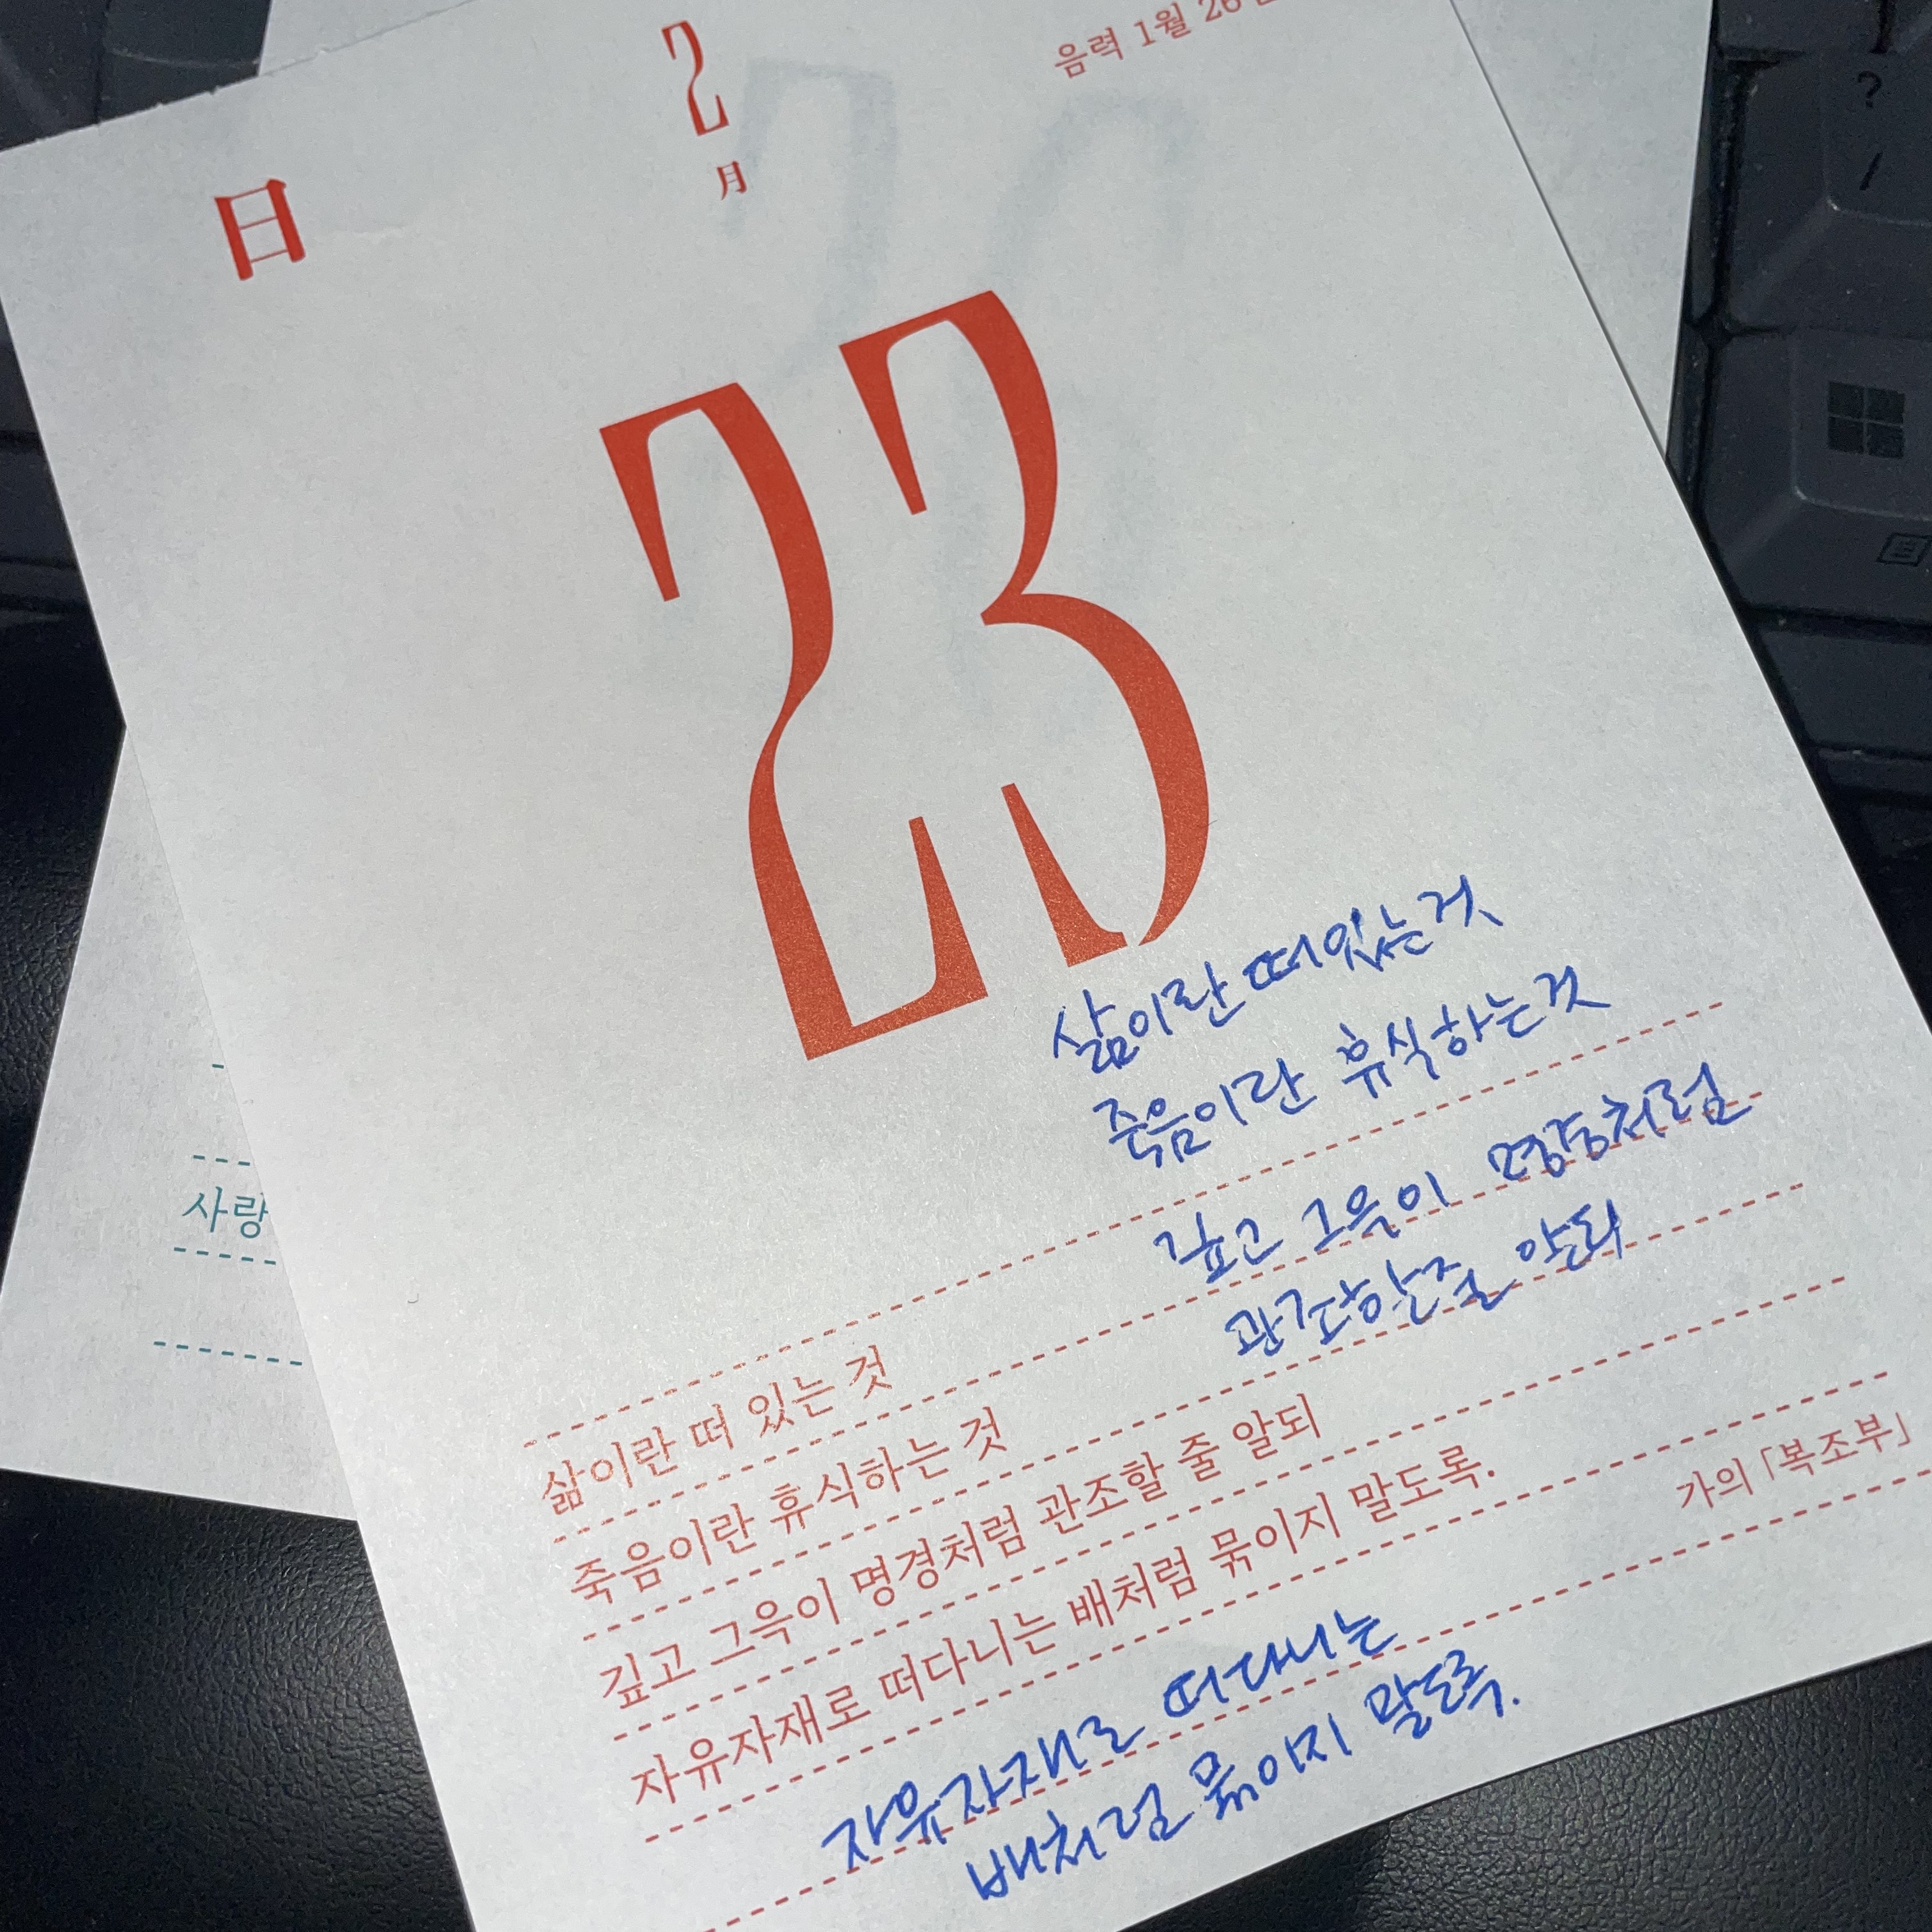 2
月
음력 1월 26
日
23
삶이란 떠있는 것
죽음이란 휴식하는 것
깊고 그윽이 명경처럼
관조할 줄 알되
삶이란 떠 있는 것
죽음이란 휴식하는 것
깊고 그윽이 명경처럼 관조할 줄 알되
자유자재로 떠다니는 배처럼 묶이지 말도록.
가의 「복조부」
자유자재로 떠다니는
배처럼 묶이지 말도록.
사랑
?
/